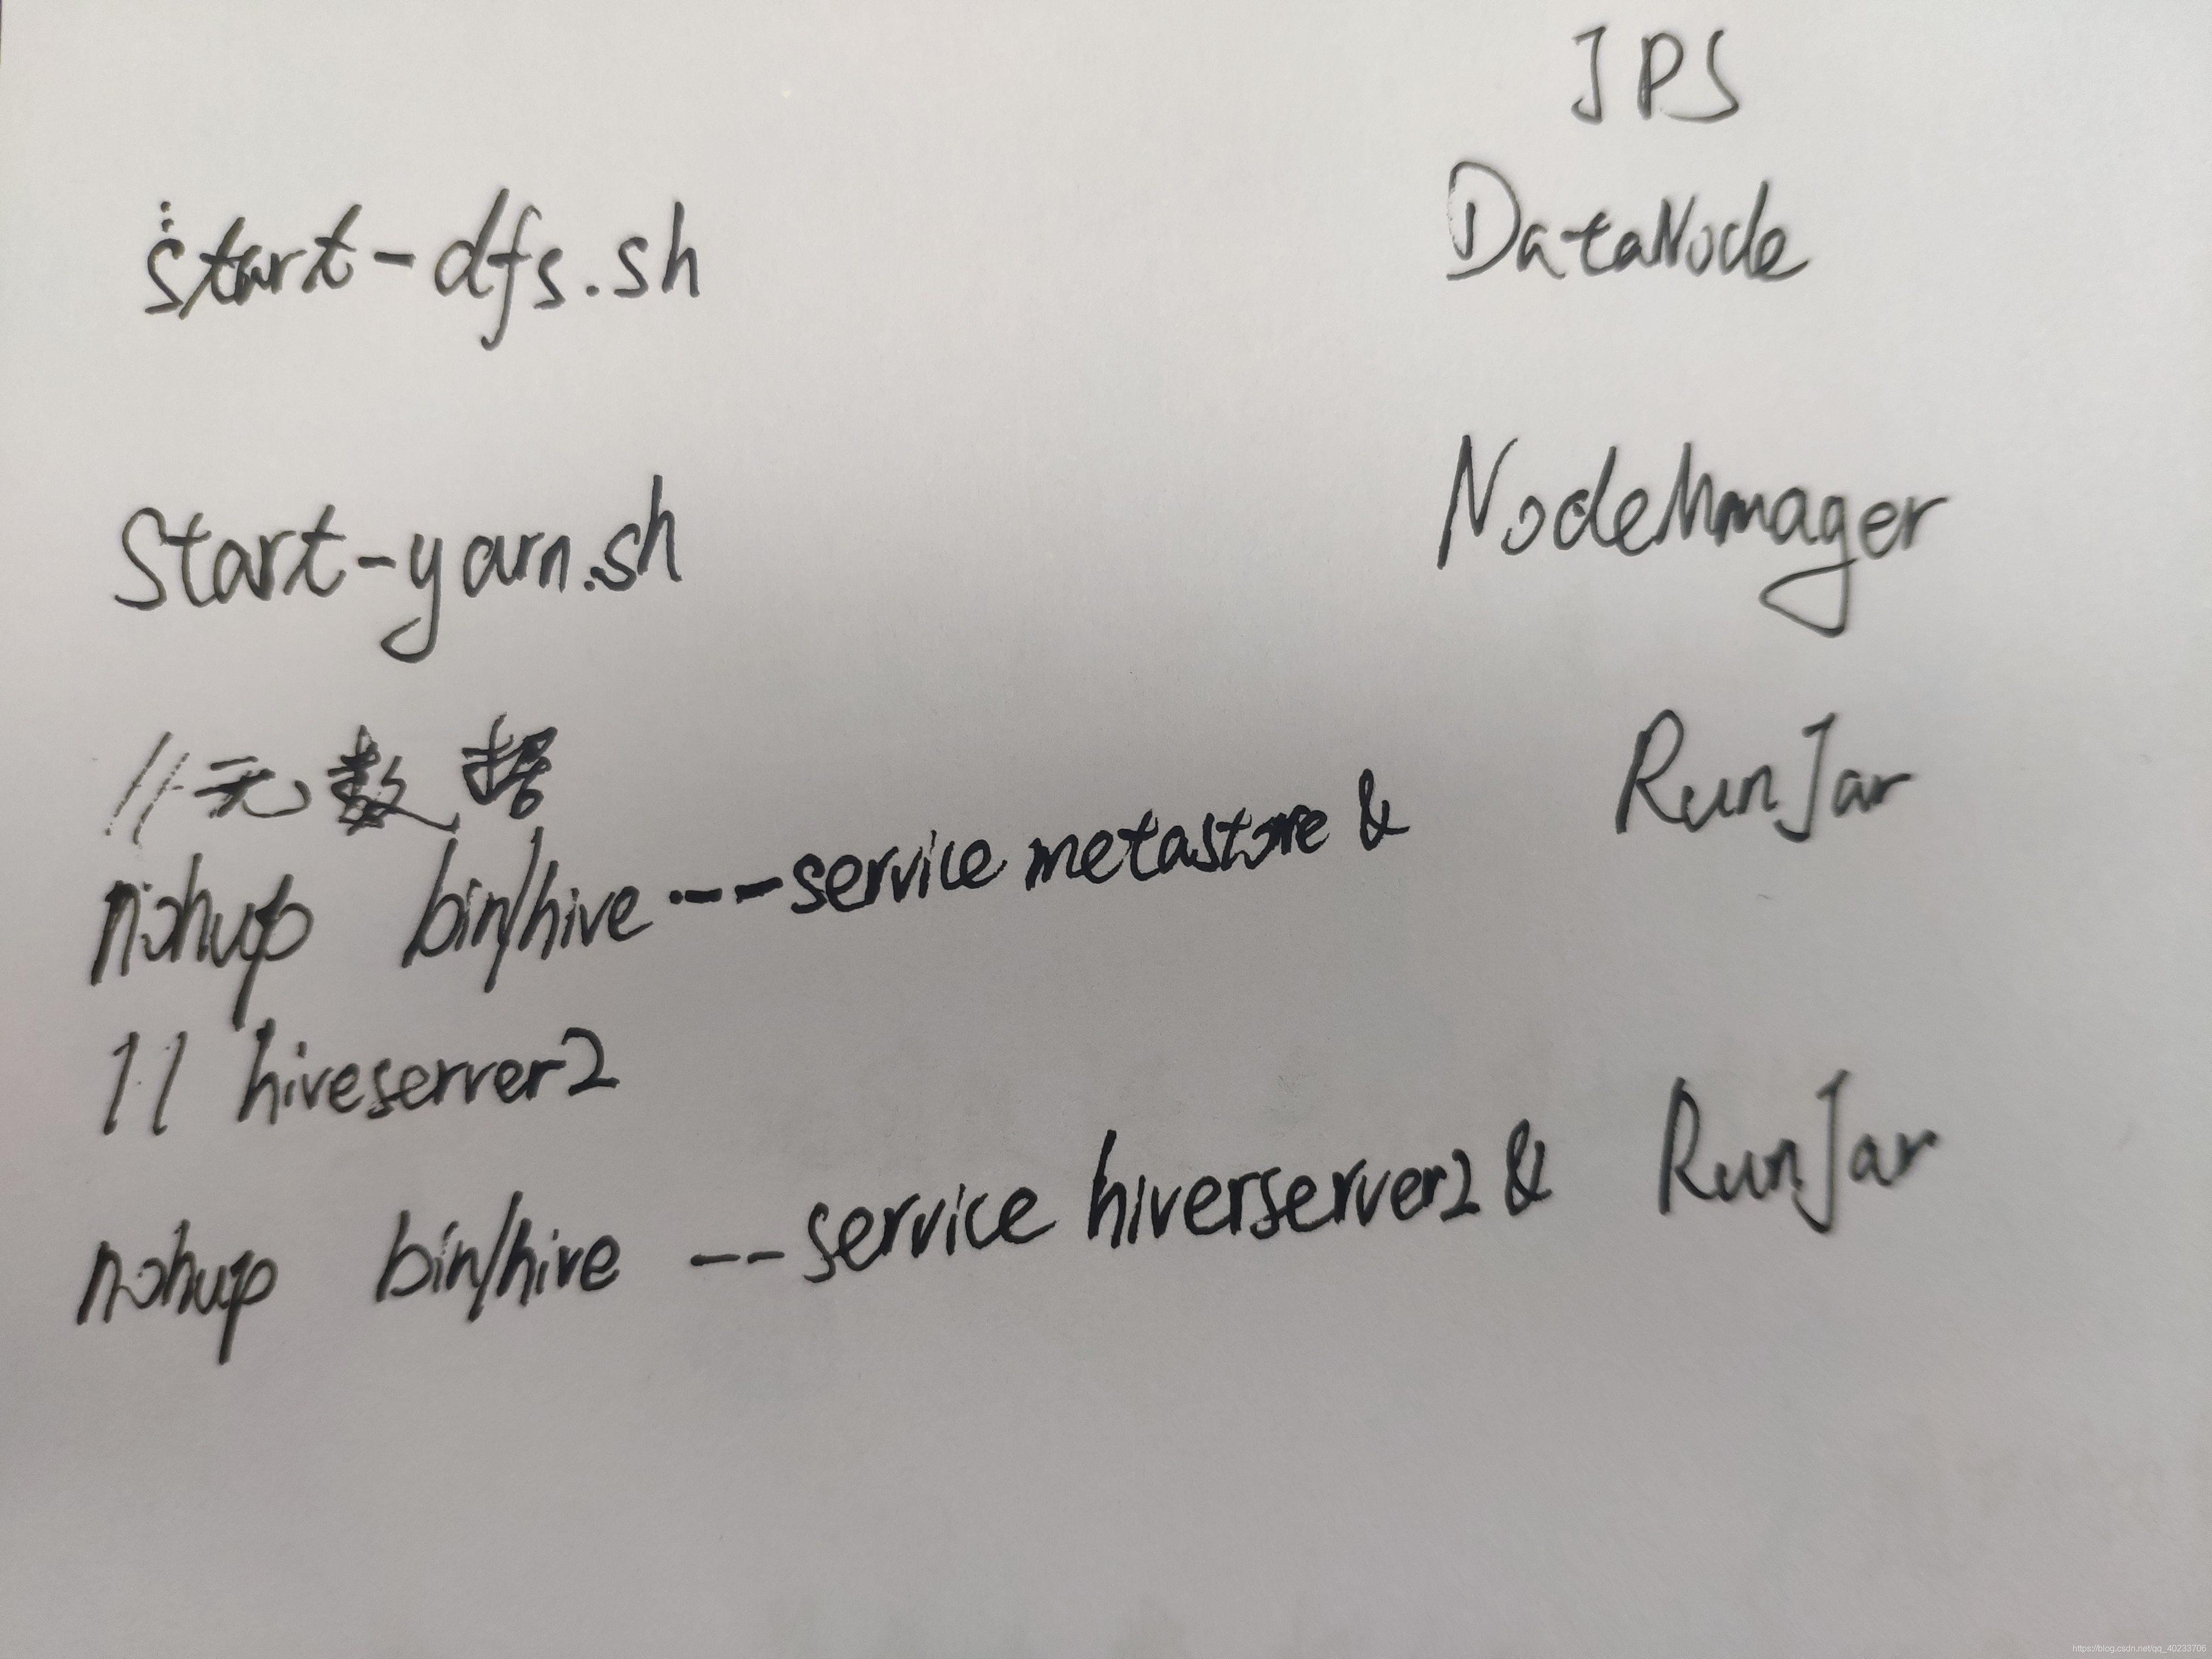 JPS
start-dfs.sh DataNode
Start-yarn.sh NodeManager
//元数据
nohup bin/hive ---service metastore & RunJar
// hiveserver2
nohup bin/hive --service hiverserver2 & RunJar
https://blog.csdn.net/qq_40233706